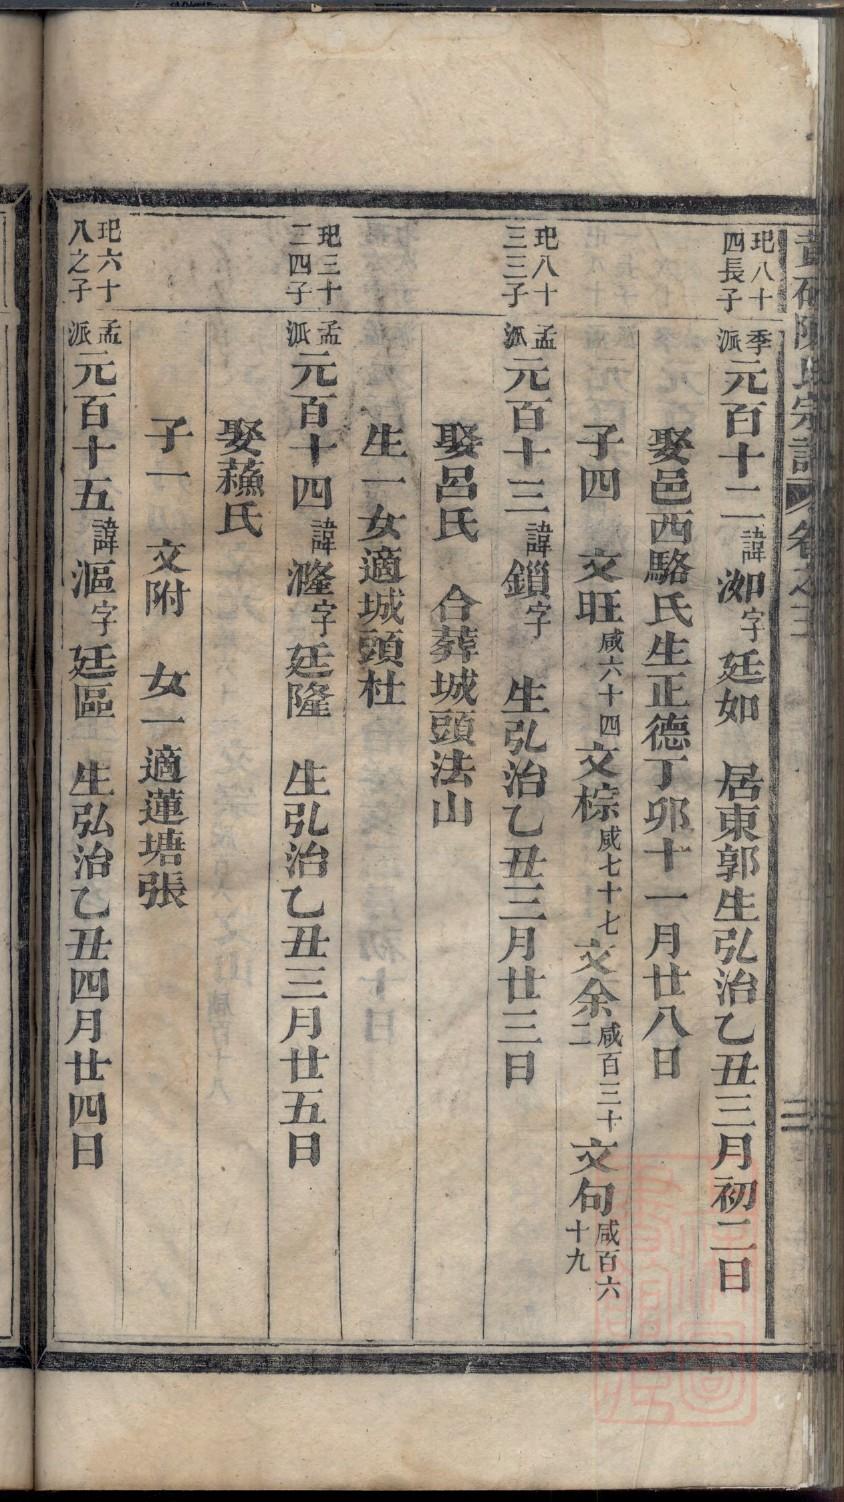 陳氏宗譜 卷之三
玘八十四長子
季派元百十二諱洳字廷如 居東郭生弘治乙丑三月初二日
娶邑西駱氏生正德丁卯十一月廿八日
子四 文旺咸六十四文棕咸七十七文余咸百三十二文句咸百六十九
玘八十三三子
孟派元百十三諱鎻字 生弘治乙丑三月廿三日
娶呂氏 合葬城頭法山
生一女適城頭杜
玘三十三四子
孟派元百十四諱漋字廷隆 生弘治乙丑三月廿五日
娶蘓氏
子一 文附 女一適蓮塘張
玘六十八之子
孟派元百十五諱漚字廷區 生弘治乙丑四月廿四日